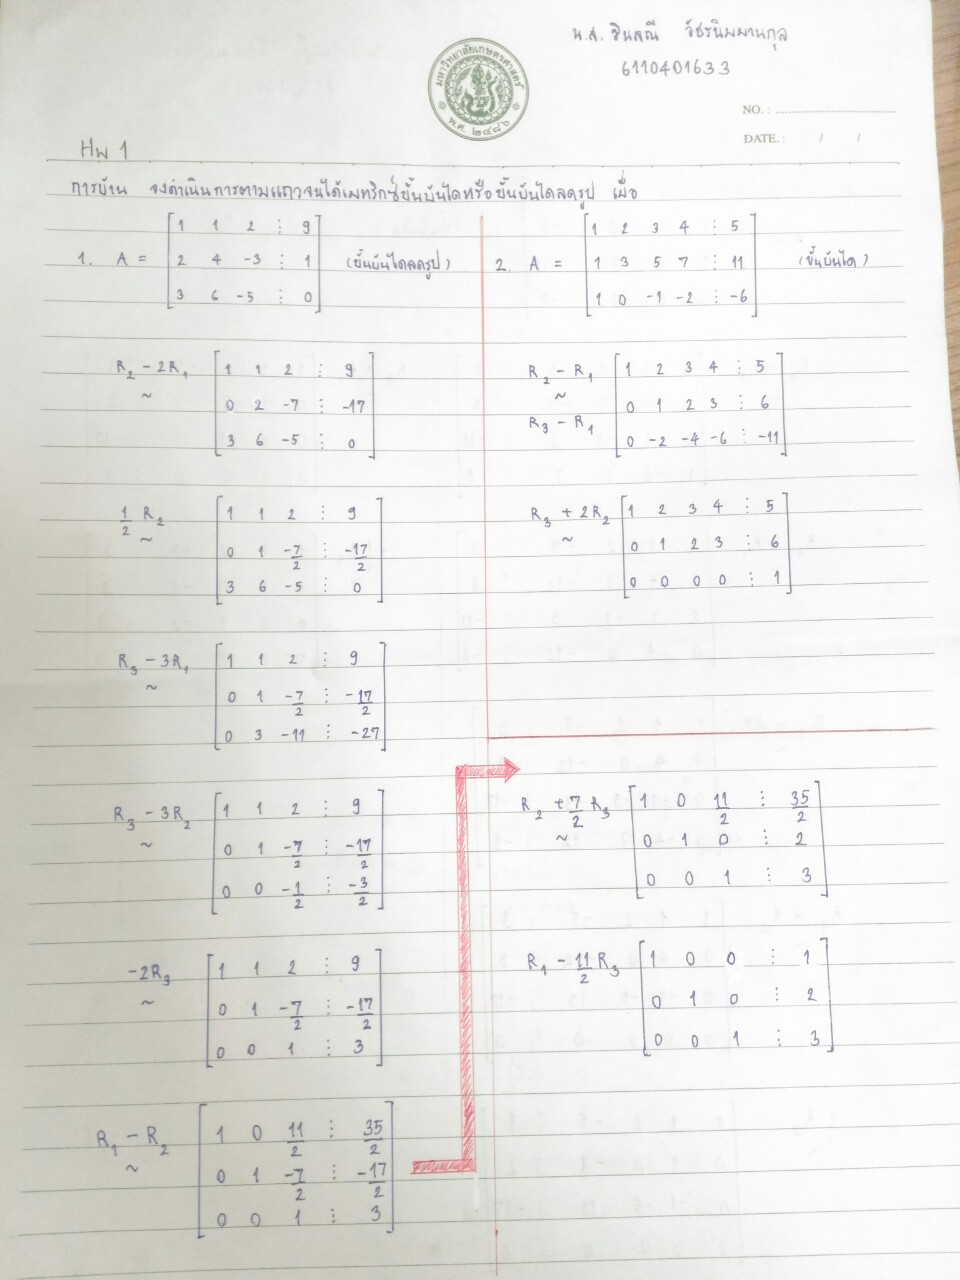 น.ส. ชินสณี วัชรนิมมานกุล
6110401633
มหาวิทยาลัยเกษตรศาสตร์
พ.ศ. ๒๔๘๖
NO. :
DATE. : / /
HW 1
การบ้าน จงดำเนินการตามแถวจนได้เมทริกซ์ขั้นบันไดหรือขั้นบันไดลดรูป เมื่อ
1. A = (ขั้นบันไดลดรูป)
1 1 2 ⋮ 9
2 4 -3 ⋮ 1
3 6 -5 ⋮ 0
R₂ - 2R₁ ~
1 1 2 ⋮ 9
0 2 -7 ⋮ -17
3 6 -5 ⋮ 0
1/2 R₂ ~
1 1 2 ⋮ 9
0 1 -7/2 ⋮ -17/2
3 6 -5 ⋮ 0
R₃ - 3R₁ ~
1 1 2 ⋮ 9
0 1 -7/2 ⋮ -17/2
0 3 -11 ⋮ -27
R₃ - 3R₂ ~
1 1 2 ⋮ 9
0 1 -7/2 ⋮ -17/2
0 0 -1/2 ⋮ -3/2
-2R₃ ~
1 1 2 ⋮ 9
0 1 -7/2 ⋮ -17/2
0 0 1 ⋮ 3
R₁ - R₂ ~
1 0 11/2 ⋮ 35/2
0 1 -7/2 ⋮ -17/2
0 0 1 ⋮ 3
R₂ + 7/2 R₃ ~
1 0 11/2 ⋮ 35/2
0 1 0 ⋮ 2
0 0 1 ⋮ 3
R₁ - 11/2 R₃
1 0 0 ⋮ 1
0 1 0 ⋮ 2
0 0 1 ⋮ 3
2. A = (ขั้นบันได)
1 2 3 4 ⋮ 5
1 3 5 7 ⋮ 11
1 0 -1 -2 ⋮ -6
R₂ - R₁ ~
R₃ - R₁
1 2 3 4 ⋮ 5
0 1 2 3 ⋮ 6
0 -2 -4 -6 ⋮ -11
R₃ + 2R₂ ~
1 2 3 4 ⋮ 5
0 1 2 3 ⋮ 6
0 0 0 0 ⋮ 1